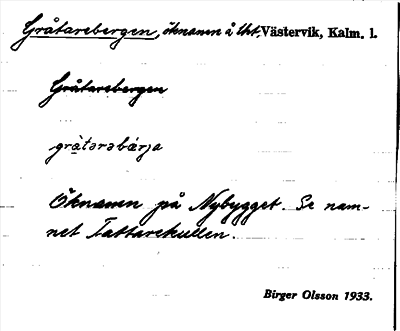 Gråtarebergen, öknamn å lht. Västervik, Kalm. l.
Gråtarebergen
gràtarəbærja
Öknamn på Nybygget. Se nam-
net Tattarekullen.
Birger Olsson 1933.